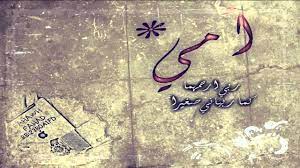 امي *
ربي ارحمهما
كما ربياني صغيرا